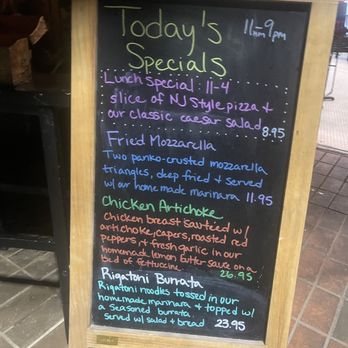 Today's
Specials
11am-9pm
Lunch Special 11-4
slice of NJ Style pizza +
our classic caesar salad
8.95
Fried Mozzarella
Two panko-crusted mozzarella
triangles, deep fried & served
w/ our homemade marinara 11.95
Chicken Artichoke
Chicken breast sauteed w/
artichoke, capers, roasted red
peppers, + fresh garlic in our
homemade lemon butter sauce on a
bed of fettuccine 26.95
Rigatoni Burrata
Rigatoni noodles tossed in our
homemade marinara + topped w/
a seasoned burrata.
Served w/ salad & bread 23.95